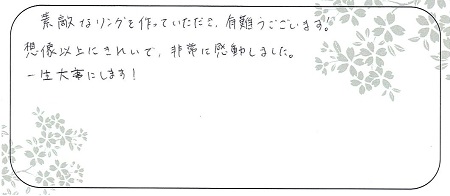 素敵なリングを作っていただき、有難うございます!
想像以上にきれいで、非常に感動しました。
一生大事にします!